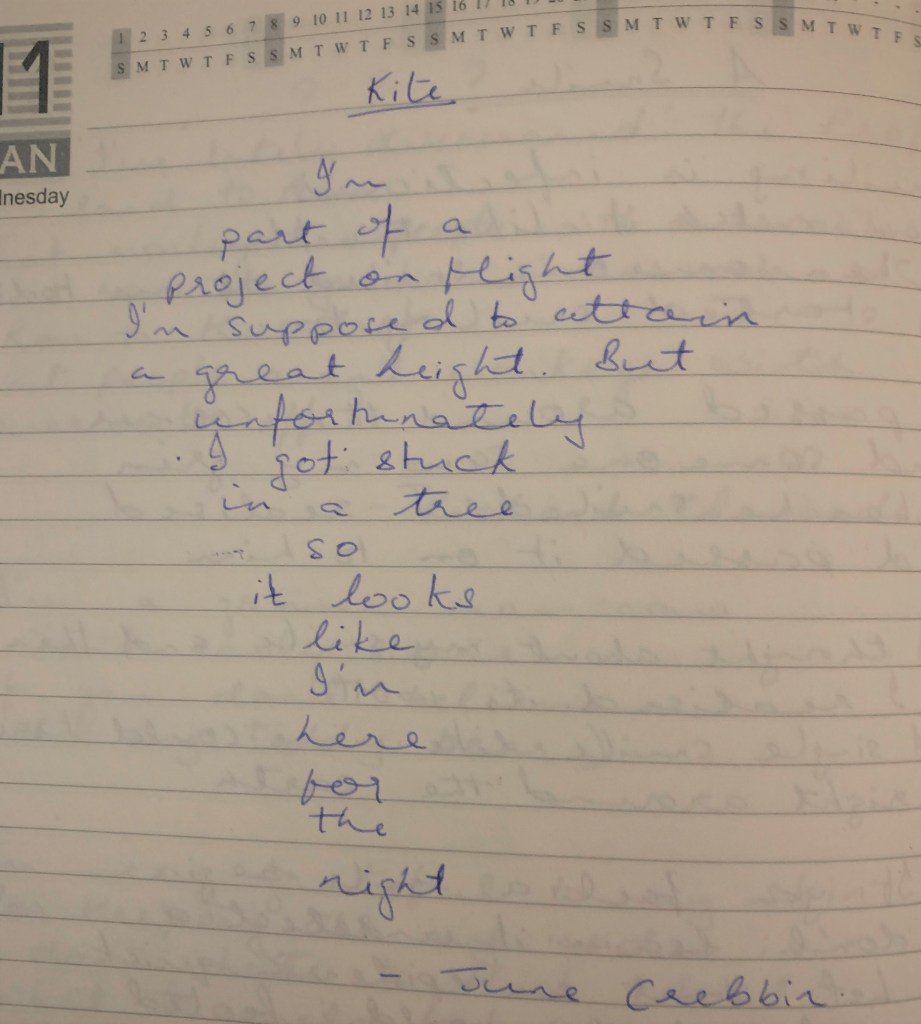 1 2 3 4 5 6 7 8 9 10 11 12 13 14 15 16 17 18
S M T W T F S S M T W T F S S M T W T F S S M T W T F S S M T W T F S
11
AN
nesday
Kite
I'm
part of a
project on flight
I'm supposed to attain
a great height. But
unfortunately
I got stuck
in a tree
so
it looks
like
I'm
here
for
the
night
- June Crebbin.